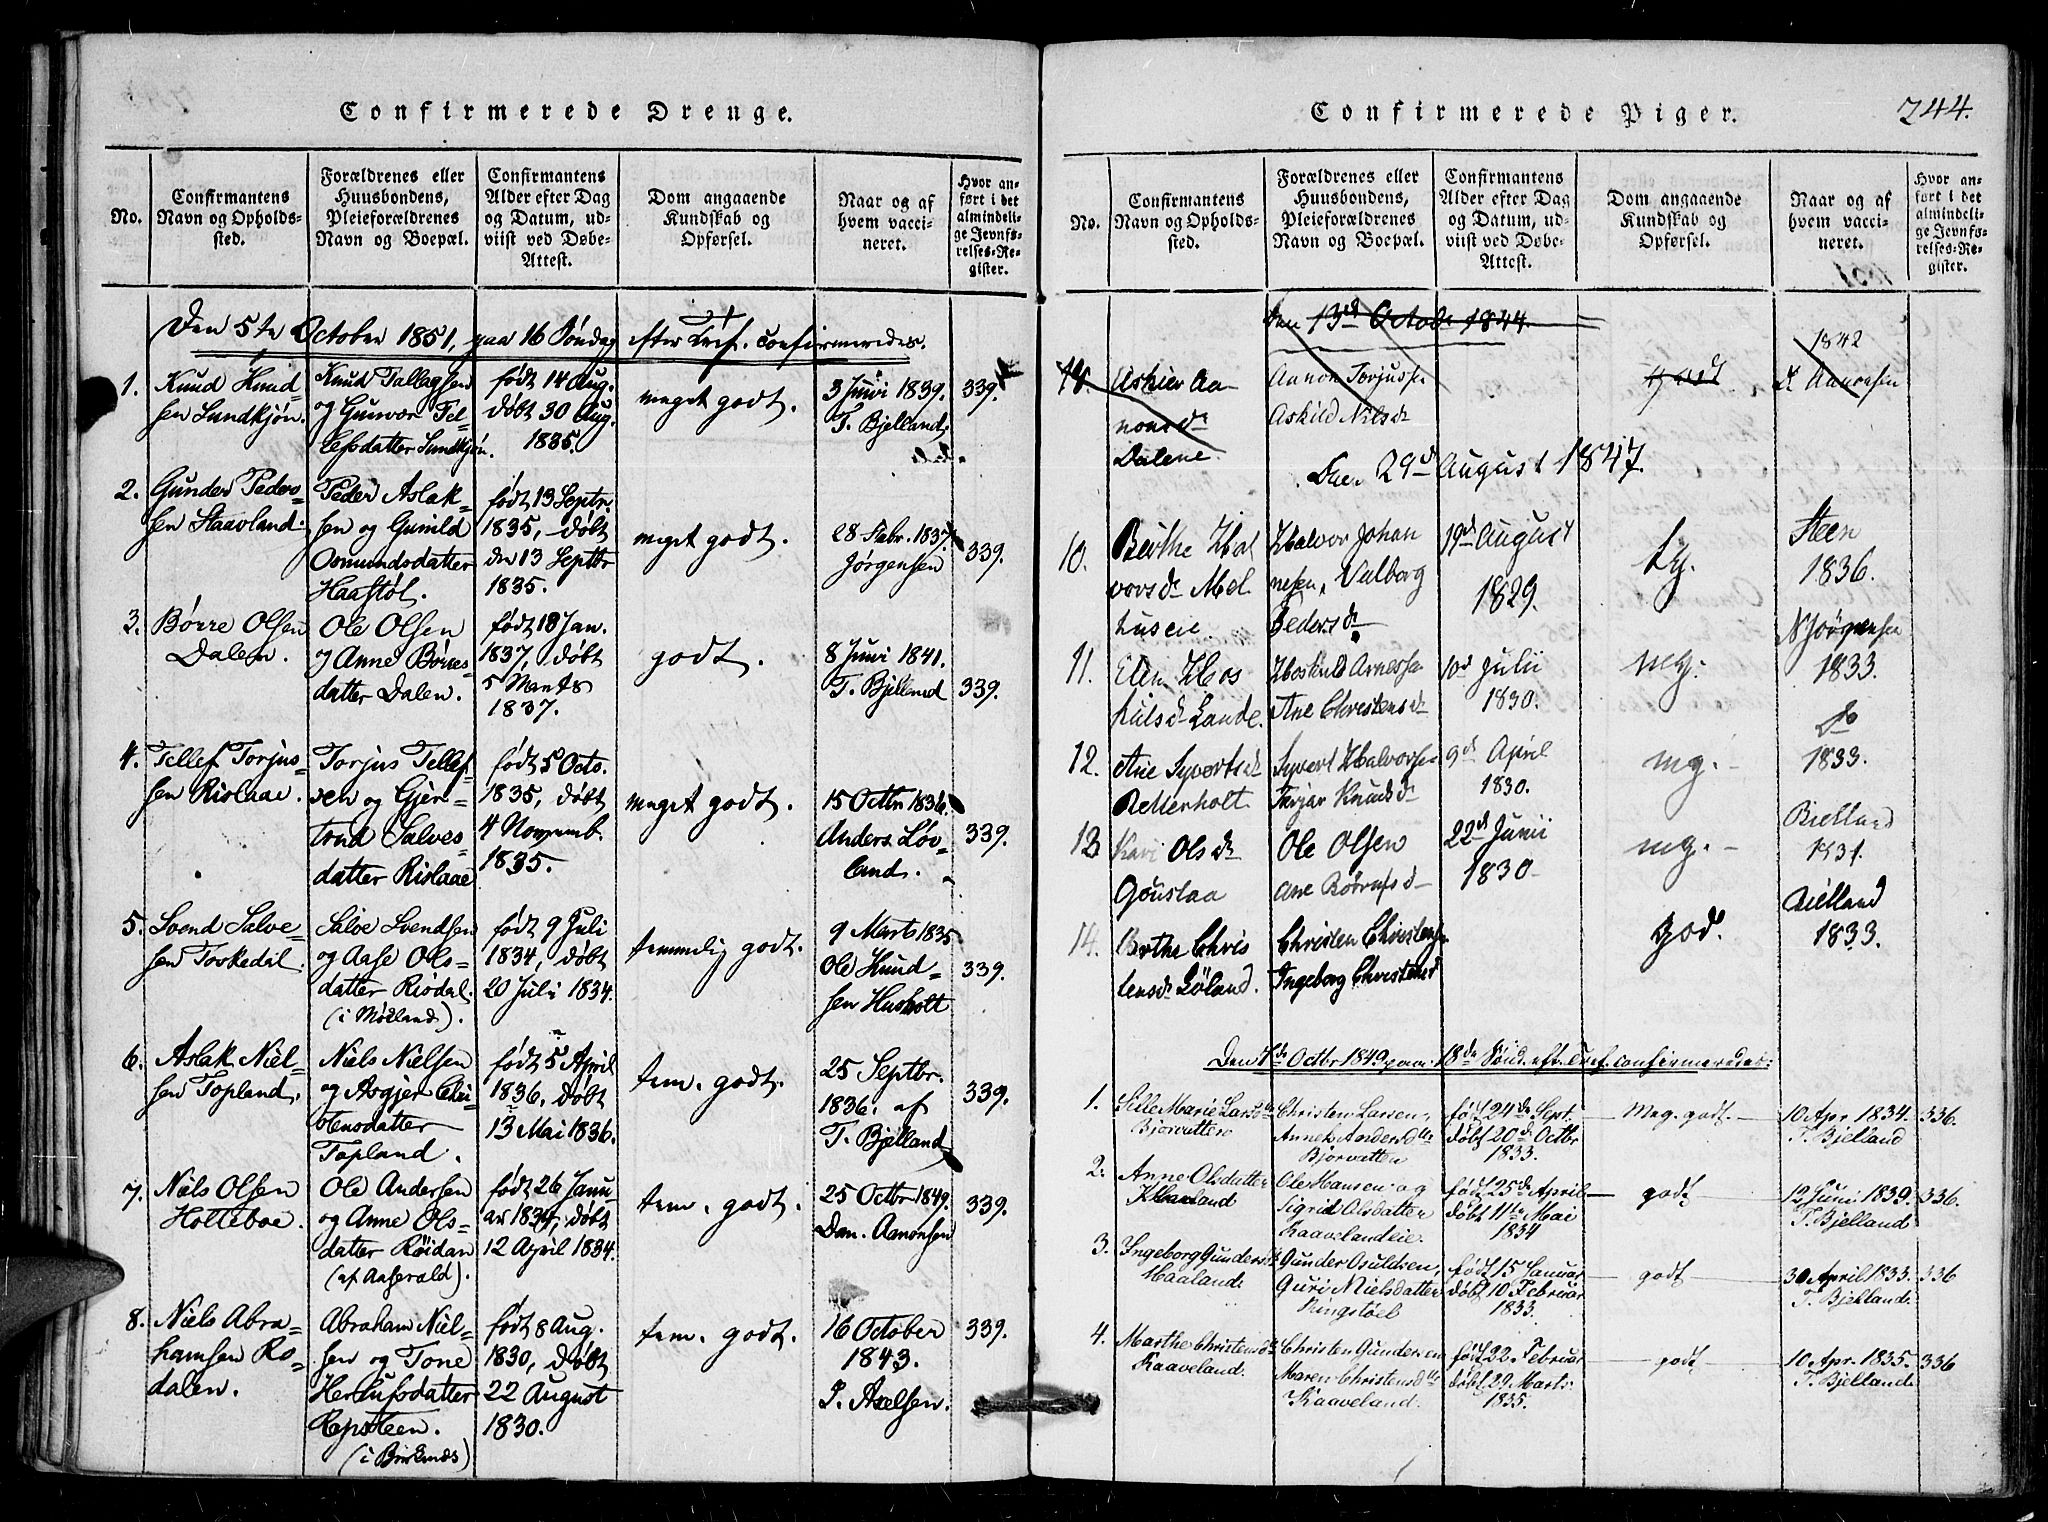 Confirmerede Drenge.
No.
Confirmantens
Navn og Opholds-
sted.
Forældrenes eller
Huusbondens,
Pleieforældrenes
Navn og Boepæl.
Confirmantens
Alder efter Dag
og Datum, ud-
viist ved Døbe-
Attest.
Dom angaaende
Kundskab og
Opførsel.
Naar og af
hvem vacci-
neret.
Hvor an-
ført i det
almindeli-
ge Jevnfø-
relses-Re-
gister.
Den 5te October 1851, paa 16 Søndag efter Tref. confirmeredes.
1.
Knud Knud-
sen Sundkjøn.
Knud Tallagsen
og Gunvor Tel-
lefsdatter Sundkjøn.
født 14 Aug.
døbt 30 Aug.
1835.
meget godt.
3 Juni 1839.
T. Bjelland.
339.
2.
Gunder Peder-
sen Staavland.
Peder Aslak-
sen og Gunild
Osmundsdatter
Haastøl.
født 13 Septr.
1835, døbt
den 13 Septbr
1835.
meget godt.
28 Febr. 1837.
Jørgensen
339.
3.
Børre Olsen
Dalen.
Ole Olsen
og Anne Børres-
datter Dalen.
født 18 Jan.
1837, døbt
5 Marts
1837.
godt.
8 Juni 1841.
T. Bjelland
339.
4.
Tellef Torjus-
sen Rislaae.
Torjus Tellef-
sen og Gjer-
trud Salves-
datter Rislaae
født 5 Octo.
1835, døbt
4 Novemb.
1835.
meget godt.
15 Octbr 1836.
Anders Løv-
land.
339.
5.
Svend Salve-
sen Torkedal.
Salve Svendsen
og Aase Ols-
datter Risdal.
(i Mosland).
født 9 Juli
1834, døbt
20 Juli 1834.
temmelig godt.
9 Marts 1835
Ole Knud-
sen Husholt
339.
6.
Aslak Niel-
sen Topland.
Niels Nielsen
og Asgjer Chri-
stensdatter
Topland.
født 5 April
1836, døbt
13 Mai 1836.
tem. godt.
25 Septbr.
1836. af
T. Bjelland
339.
7.
Niels Olsen
Holleboe.
Ole Andersen
og Anne Ols-
datter Røidan
(af Aaserald).
født 26 Janu-
ar 1834, døbt
12 April 1834.
tem. godt.
25 Octbr 1849.
Dan. Aanonsen
339.
8.
Niels Abra-
hamsen Ro-
dalen.
Abraham Niel-
sen og Tone
Herlufsdatter
Repsteen.
(i Birkenæs)
født 8 Aug.
1830, døbt
22 August
1830.
tem. godt.
16 October
1843.
P. Axelsen.
339.
Confirmerede Piger.
244.
No.
Confirmantens
Navn og Opholds-
sted.
Forældrenes eller
Huusbondens,
Pleieforældrenes
Navn og Boepæl.
Confirmantens
Alder efter Dag
og Datum, ud-
viist ved Døbe-
Attest.
Dom angaaende
Kundskab og
Opførsel.
Naar og af
hvem vacci-
neret.
Hvor an-
ført i det
almindeli-
ge Jevnfø-
relses-Re-
gister.
Den 13de Octobr 1844.
Aa-
nonsdr
Dalene
Aanon Torjussen
Askild Nilsdr
godt
1842
Aanonsen
Den 29d August 1847.
10.
Berthe Hal
vorsdr Mol
husene.
Halvor Johan
nesen, Valborg
Pedersdr
19d August
1829.
tg.
Steen
1836.
11.
Elen Hos
kulsdr Lande.
Hoskuld Arnessen
Ane Christensdr
10d Julii
1830.
mg.
N Jørgensen
1833.
12.
Ane Syvertsdr
Rettersholt.
Syvert Halvorse-
Knudsdr
9d April
1830.
mg.
do
1833.
13
Kari Olsdr
Goustaa
Ole Olsen
Ane Børrufsdr
22d Junii
1830
mg.
Bielland
1831.
14.
Berthe Chris
tensdr Løland.
Christen Christens.
Ingeborg Christensd
God.
Bielland
1833.
Den 7de Octbr 1849 paa 18de Sønd. eft. Tref. confirmeredes:
1.
Sille Marie Larsdtr
Bjorvatten
Christen Larsen,
Anne Andersdtr
Bjorvatten
født 24de Sept.
døbt 20de Octbr
1833.
Meg. godt
10 Apr. 1834.
T. Bjelland
336.
2.
Anne Olsdatter
Kaaveland
Ole Hansen og
Sigrid Olsdatter
Kaavelandeie.
født 25de April
døbt 11te Mai
1834
godt
12 Juni 1839.
T. Bjelland
336.
3.
Ingeborg Gundersdtr
Haaland.
Gunder Osuldsen,
Guri Nielsdatter
Ringstøel
født 15 Januar
døbt 10 Februar
1833.
godt
30 April 1833.
T. Bjelland.
336
4.
Marthe Christensdtr
Kaaveland.
Christen Gundersen
Maren Christensdtr
Kaaveland.
født 22. Februar
døbt 29 Marts
1835.
godt
10 Apr. 1835.
T. Bjelland.
336